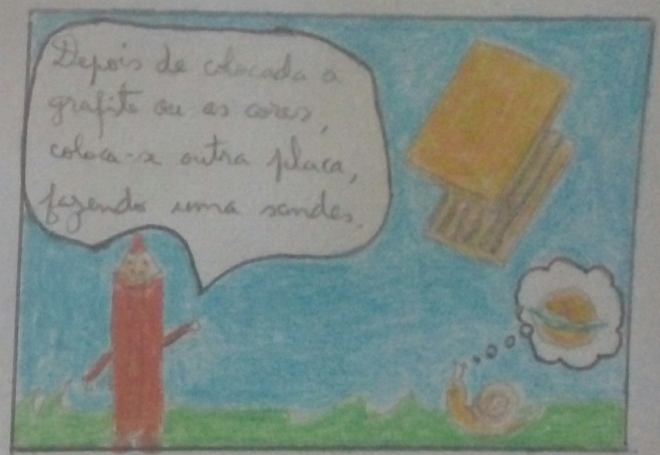 Depois de colocada a
grafite ou as cores,
coloca-se outra placa,
fazendo uma sandes.